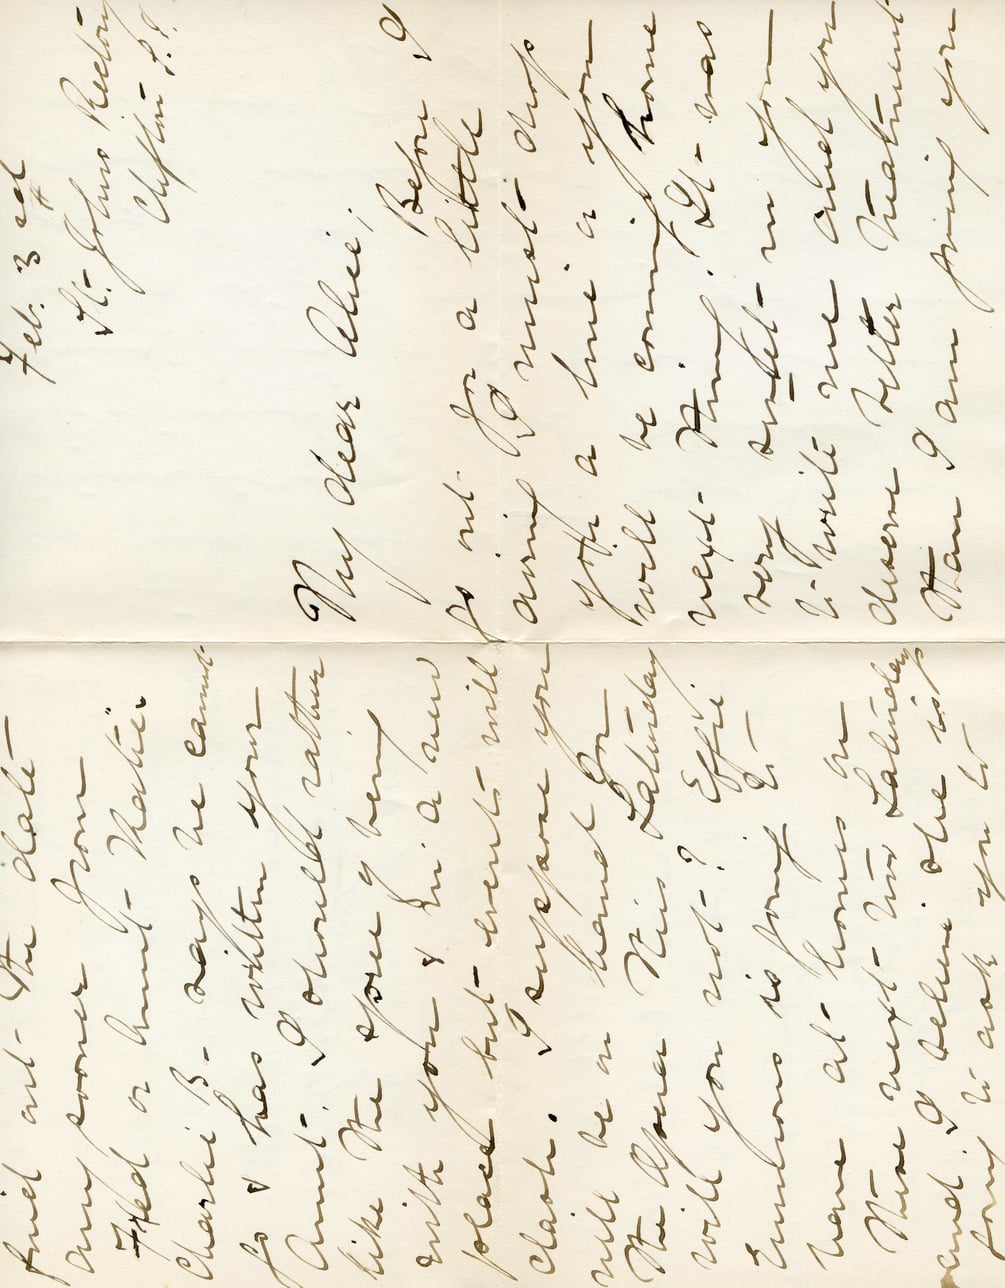 Feb. 3rd
St. Johns Rectory
Clifton S.I.
My dear Alice,
Before I
go out for a little
airing I must drop
you a line a you
will be coming home
next thing. It was
very sweet in you
to write me and you
deserve better treatment
than I am giving you
find out the date
any sooner from
Fred or Aunt Hattie.
Charlie B. says he cannot
go & has written your
Aunt. I should rather
like the spree of being
with you & in a new
place but events will
clash. I suppose you
will be on hand for
the Opera this Saturday
will you not? Effie
Emmons is going to
have at homes on
these next two Saturdays
and I believe she is
going to ask you to